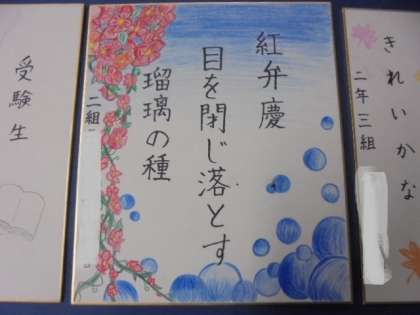 きれいかな
二年三組
紅弁慶
目を閉じ落とす
瑠璃の種
二組
受験生